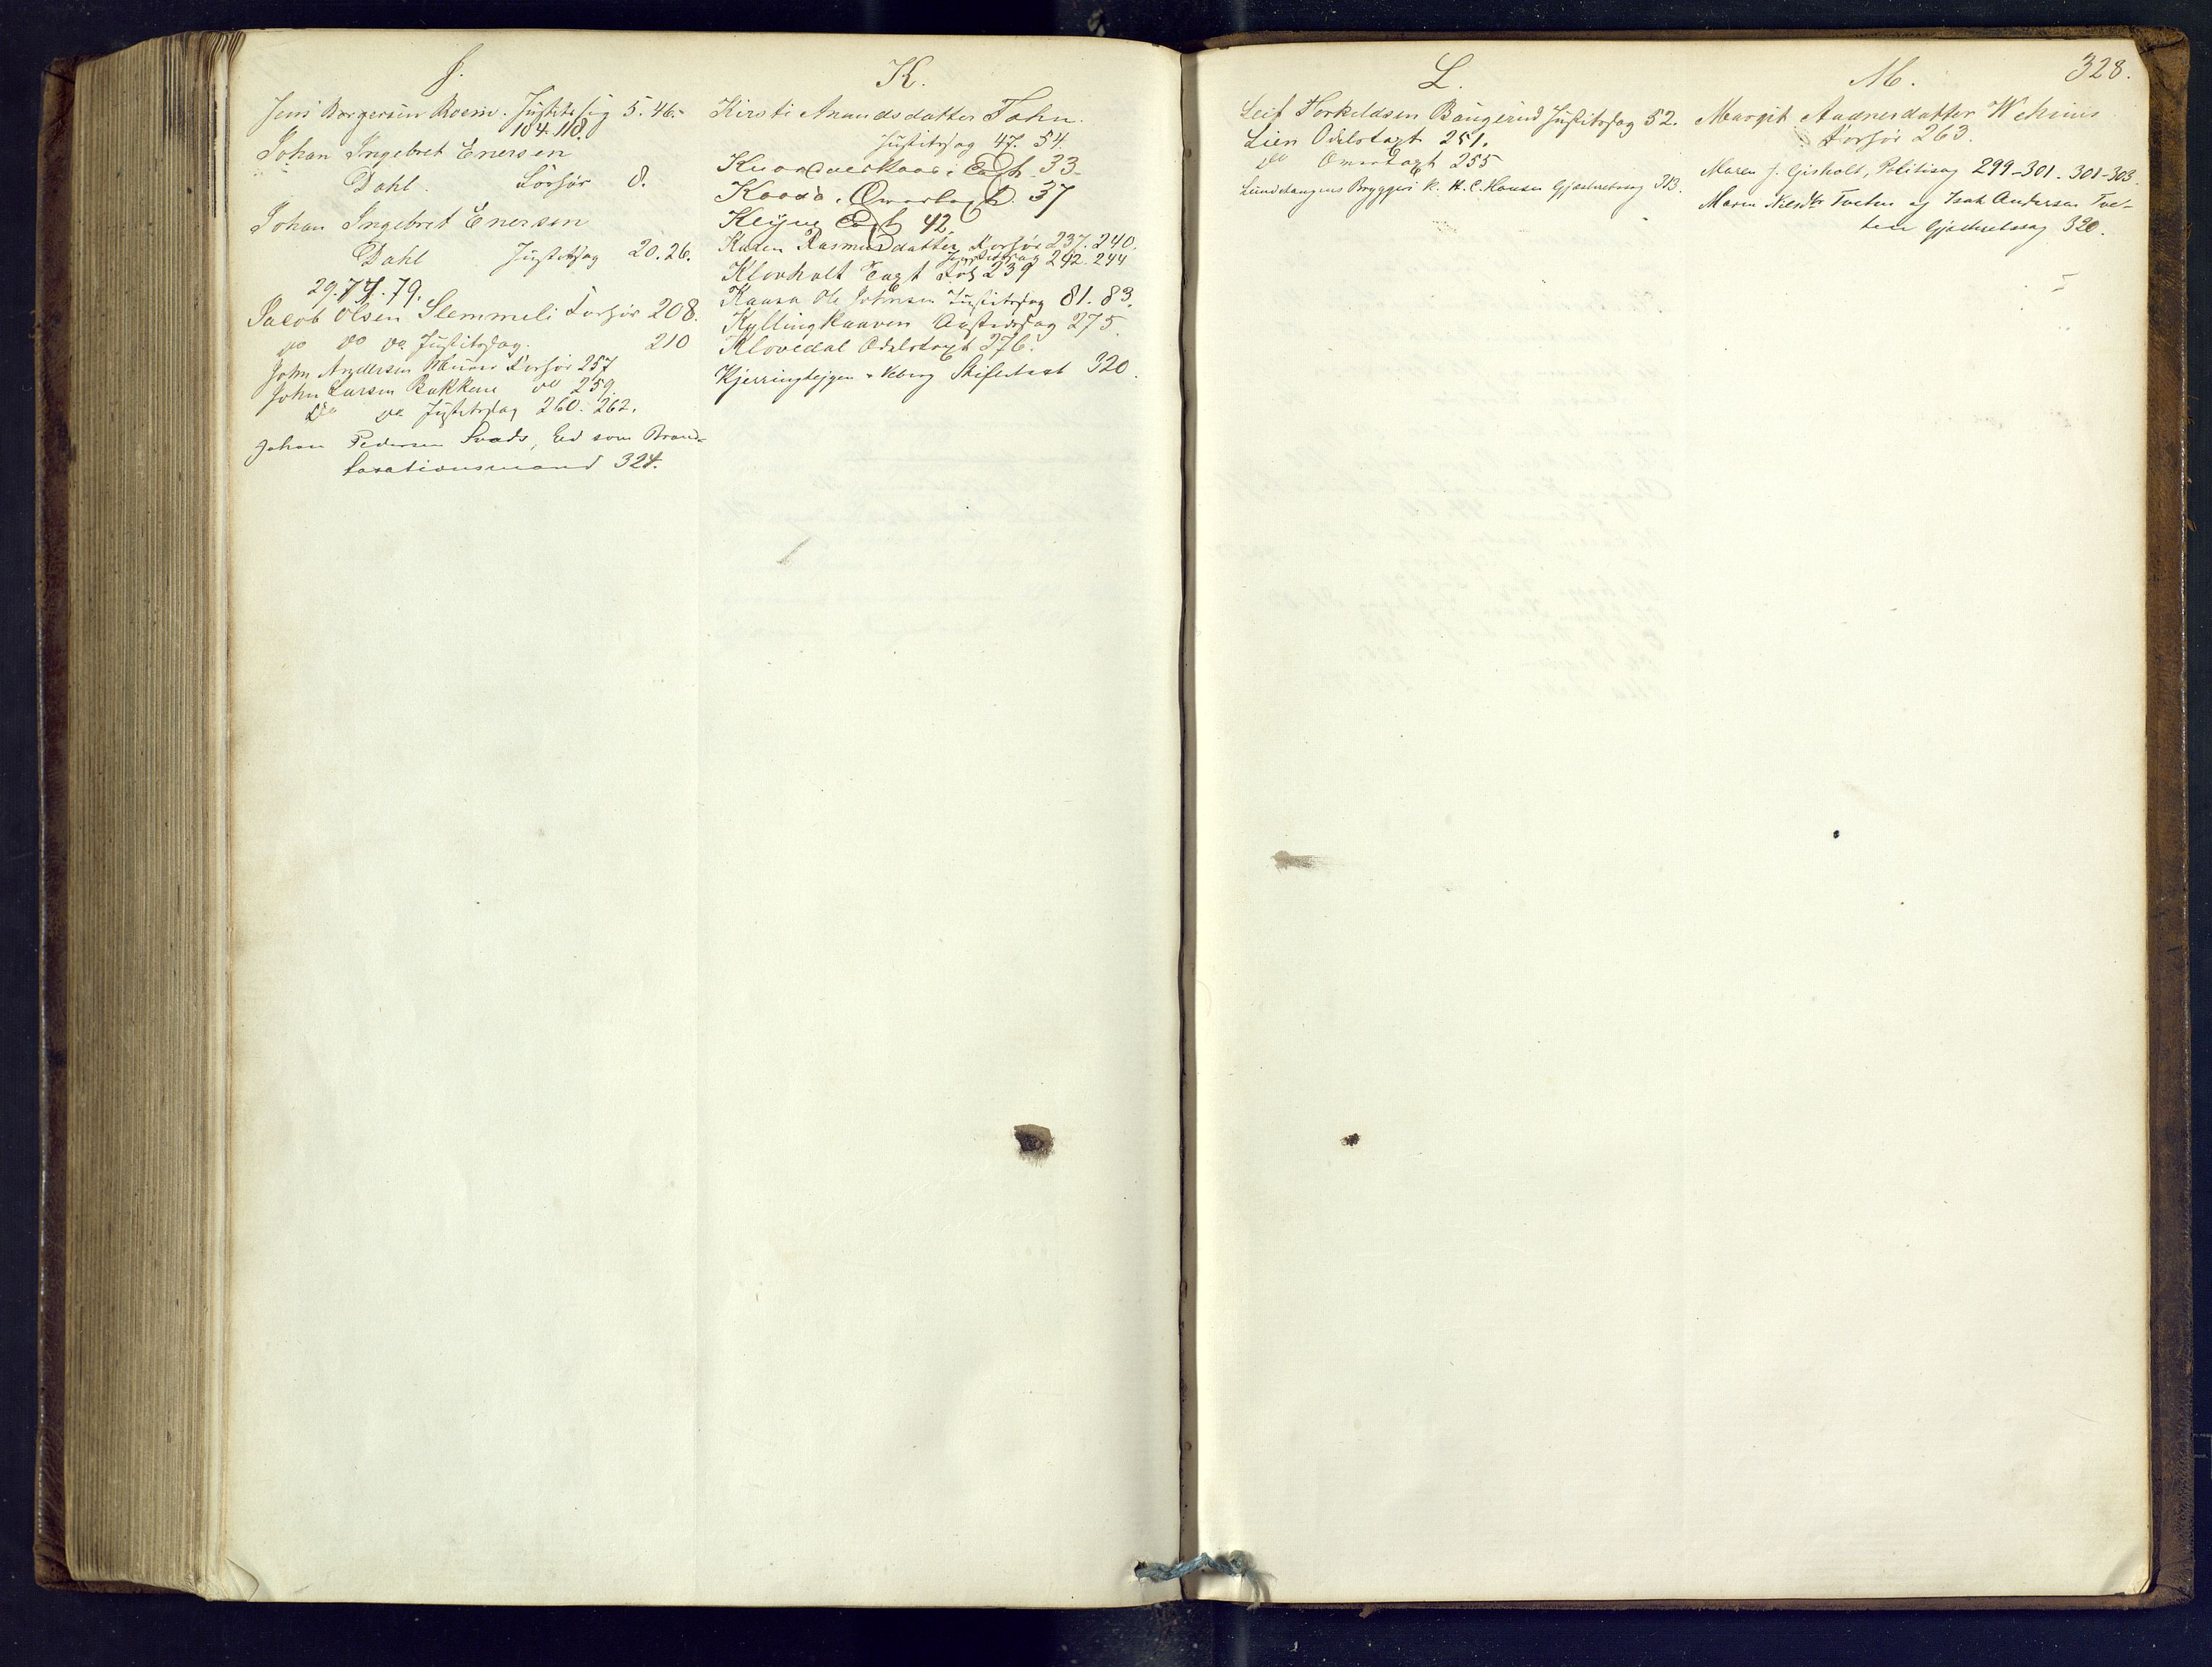 J.
Jens Borgersen Moen. Justitssag 5. 46.
104. 118.
Johan Ingebret Enersen
Dahl. Forhør 8.
Johan Ingebret Enersen
Dahl Justitssag 20. 26.
29. 74. 79.
Jacob Olsen Slemmeli Forhør 208.
do do do Justitssag. 210
John Andersen Forhør 257
John Larsen Bakkene do 259
do do Justitssag 260. 262.
Johan Pedersen Svads, Ed som Brand-
taxationsmand 324.
K.
Kirsti Anundsdatter Tahn.
Justitssag 47. 54.
Taxt. 33.
Overtaxt. 37
Taxt 42.
Karen Rasmusdatter Forhør 237. 240.
Justitssag 242. 244
Klovholt Taxt 239
Kaasa Ole Johnsen Justitssag 81. 83.
Kylling Kaaven Aastedssag 275.
Klovedal Odelstaxt 276.
Kjerringtejgen Skiftetaxt 320.
L.
Leif Torkeldsen Baugerud Justitssag 52.
Lien Odelstaxt 251.
do Overtaxt 255
Lundetangens Bryggeri v. H. C. Hansen Gjæsteretssag 313.
M. 328.
Margit Aadnesdatter
Forhør 263.
Maren J. Gisholt, Politisag 299-301. 301-303.
Maren Nilsdtr Tveten og Isak Andersen Tve-
ten Gjæsteretssag 320.